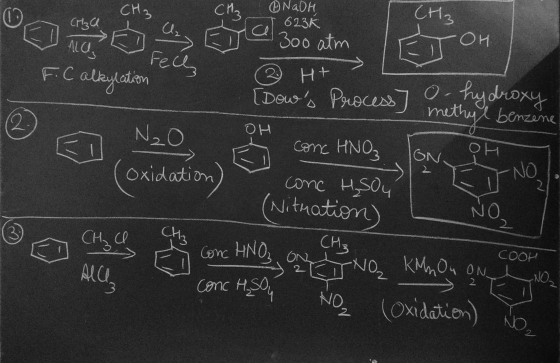 1). CH₃Cl AlCl₃ CH₃ Cl₂ FeCl₃ CH₃ Cl ① NaOH 623K 300 atm ② H⁺ CH₃ OH
F.C alkylation
[Dow's Process]
O-hydroxy
methyl benzene
2. N₂O (Oxidation) OH conc HNO₃ conc H₂SO₄ (Nitration) O₂N OH NO₂ NO₂
3 CH₃Cl AlCl₃ CH₃ conc HNO₃ conc H₂SO₄ O₂N CH₃ NO₂ NO₂ KMnO₄ (Oxidation) O₂N COOH NO₂ NO₂